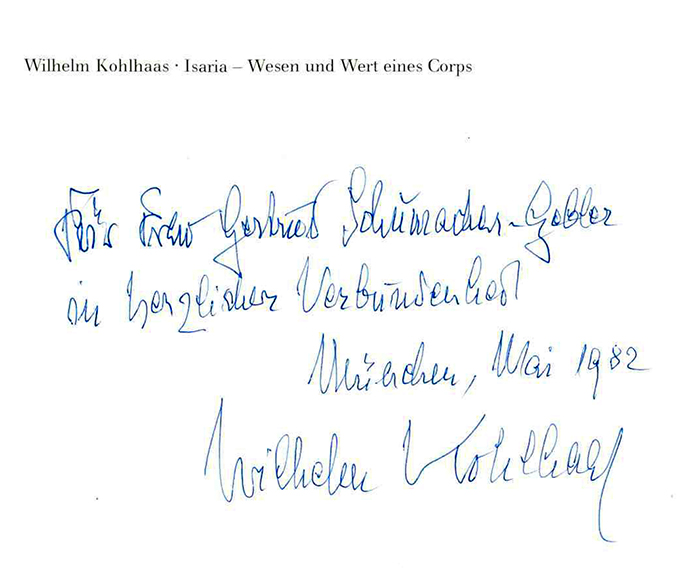 Wilhelm Kohlhaas · Isaria – Wesen und Wert eines Corps
Für Frau Gertrud Schumacher-Gebler
in herzlicher Verbundenheit
München, Mai 1982
Wilhelm Kohlhaas